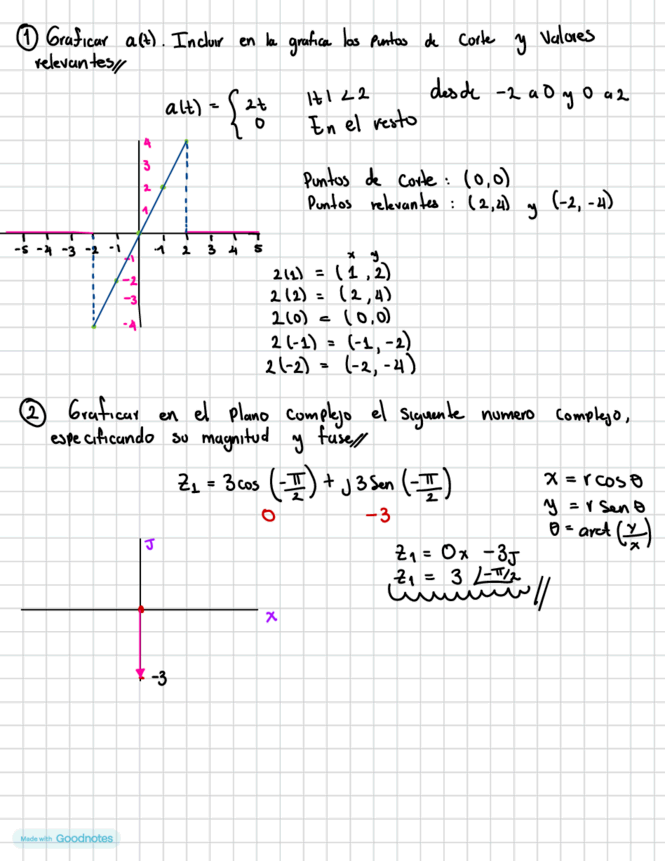 ① Graficar a(t). Incluir en la grafica los Puntos de Corte y Valores
relevantes//
a(t) = { 2t |t| < 2 desde -2 a 0 y 0 a 2
0 En el resto
4
3
2
1
-5 -4 -3 -2 -1 1 2 3 4 5
-1
-2
-3
-4
Puntos de Corte : (0,0)
Puntos relevantes : (2,4) y (-2,-4)
x y
2(1) = (1,2)
2(2) = (2,4)
2(0) = (0,0)
2(-1) = (-1,-2)
2(-2) = (-2,-4)
② Graficar en el Plano complejo el siguiente numero complejo,
especificando su magnitud y fase//
Z1 = 3cos (-π/2) + J3Sen (-π/2)
0 -3
x = r cos θ
y = r Sen θ
θ = arct (y/x)
Z1 = 0x - 3J
Z1 = 3 ∠-π/2 //
J
x
-3
Made with Goodnotes